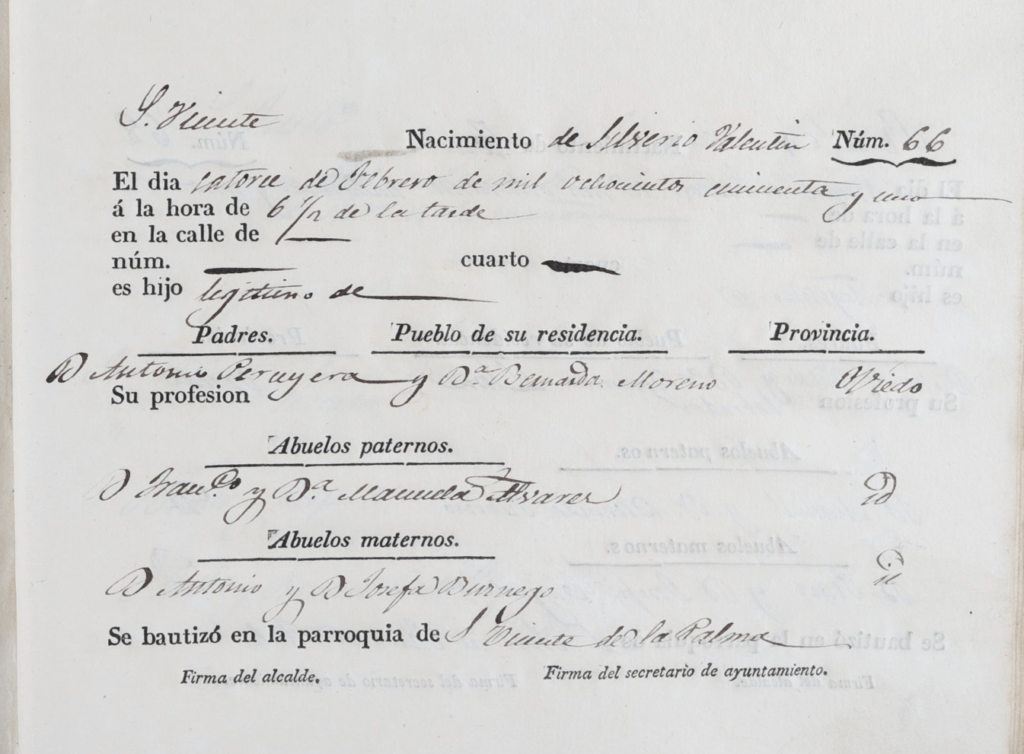 S. Vicente
Nacimiento de Silverio Valentin Núm. 66
El dia catorce de Febrero de mil ochocientos cincuenta y uno
á la hora de 6 1/2 de la tarde
en la calle de
núm. cuarto
es hijo legitimo de
Padres. Pueblo de su residencia. Provincia.
D Antonio Peruyera y Dª Bernarda Moreno Oviedo
Su profesion
Abuelos paternos.
D Franco y Dª Manuela Alvarez Id
Abuelos maternos.
D Antonio y D Josefa Id
Se bautizó en la parroquia de S Vicente de la Palma
Firma del alcalde. Firma del secretario de ayuntamiento.